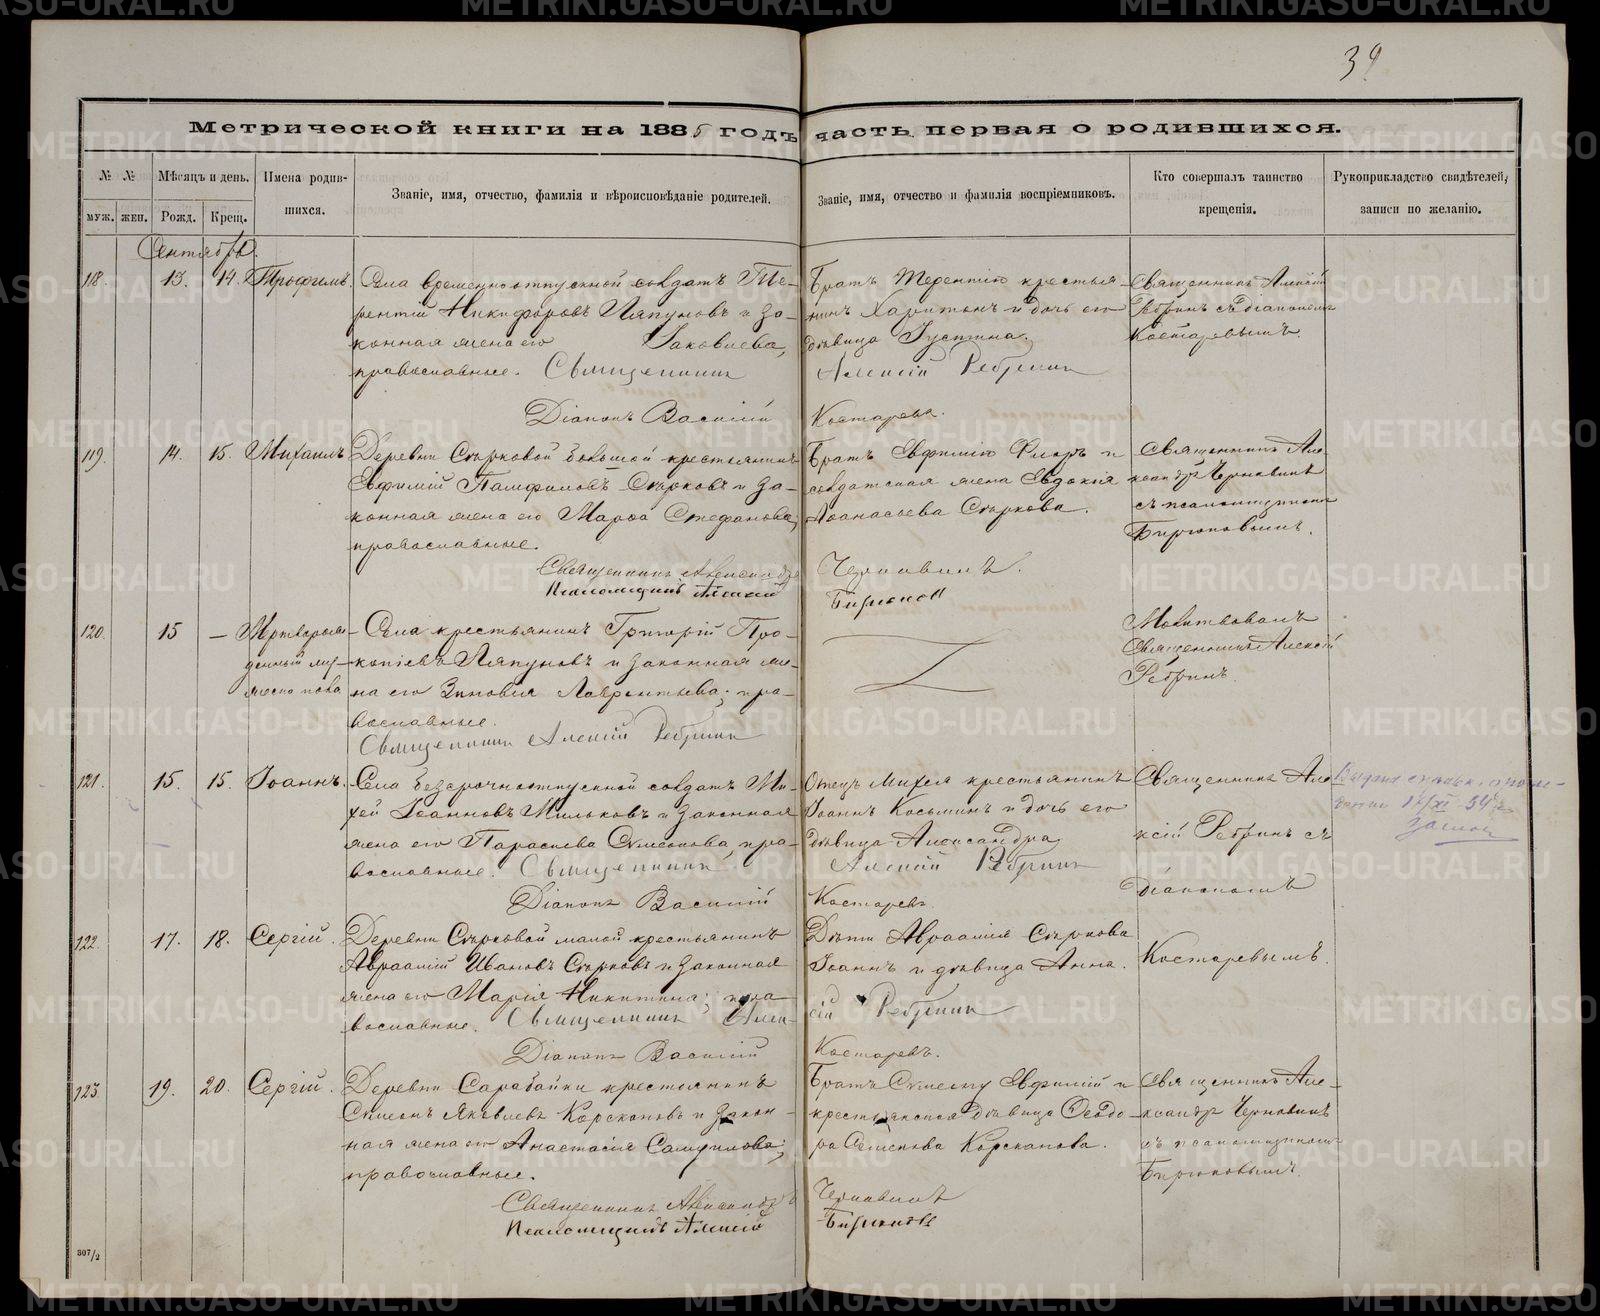 39
Метрической книги на 1885 годъ часть первая о родившихся.
№ №
Мѣсяцъ и день.
Имена родив-
шихся.
Званіе, имя, отчество, фамилія и вѣроисповѣданіе родителей.
Званіе, имя, отчество и фамилія воспріемниковъ.
Кто совершалъ таинство
крещенія.
Рукоприкладство свидѣтелей,
записи по желанію.
муж.
жен.
Рожд.
Крещ.
Сентябрь.
118. 13. 14. Трофимъ
Села временноотпускной солдатъ Те-
рентій Никифоровъ Ляпуновъ и за-
конная жена его Іаковлева,
православные. Священникъ
Діаконъ Василій
Братъ Терентію крестья-
нинъ Харитонъ и дочь его
дѣвица Іустина.
Алексій Ребринъ
Костаревъ.
Священникъ Алексій
Ребринъ съ діакономъ
Костаревымъ.
119. 14. 15. Михаилъ
Деревни Сѣрковой большой крестьянинъ
Евфимій Памфиловъ Сѣрковъ и за-
конная жена его Марѳа Стефанова,
православные.
Священникъ Александръ
Псаломщикъ Алексій
Братъ Евфимію Флоръ и
солдатская жена Евдокія
Аѳанасьева Сѣркова.
Чернавинъ.
Бирюков
Священникъ Але-
ксандръ Чернавинъ
съ псаломщикомъ
Бирюковымъ.
120. 15 —
Мертворож-
денный му-
жеска пола
Села крестьянинъ Григорій Про-
копіевъ Ляпуновъ и законная же-
на его Зиновія Лаврентьева; пра-
вославные.
Священникъ Алексій Ребринъ
Молитвовалъ
Священникъ Алексій
Ребринъ.
121. 15. 15. Іоаннъ.
Села безсрочноотпускной солдатъ Ми-
хей Іоанновъ Мильковъ и законная
жена его Параскева Симеонова, пра-
вославные. Священникъ
Діаконъ Василій
Отецъ Михея крестьянинъ
Іоаннъ Косьминъ и дочь его
дѣвица Александра
Алексій Ребринъ
Костаревъ.
Священникъ Але
ксій Ребринъ съ
діакономъ
Костаревымъ.
122. 17. 18. Сергій.
Деревни Сѣрковой малой крестьянинъ
Авраамій Ивановъ Сѣрковъ и законная
жена его Марія Никитина; пра
вославные. Священникъ Алек-
Діаконъ Василій
Дѣти Авраамія Сѣркова
Іоаннъ и дѣвица Анна.
сій Ребринъ
Костаревъ.
123. 19. 20. Сергій.
Деревни Сарабайки крестьянинъ
Симеонъ Яковлевъ Корскановъ и закон-
ная жена его Анастасія Самуилова;
православные.
Священникъ Александръ
Псаломщикъ Алексій
Братъ Симеону Евфимій и
крестьянская дѣвица Ѳеодо-
ра Семенова Корсканова.
Чернавинъ
Бирюковъ
Священникъ Але-
ксандръ Чернавинъ
съ псаломщикомъ
Бирюковымъ.
307/2
METRIKI.GASO-URAL.RU